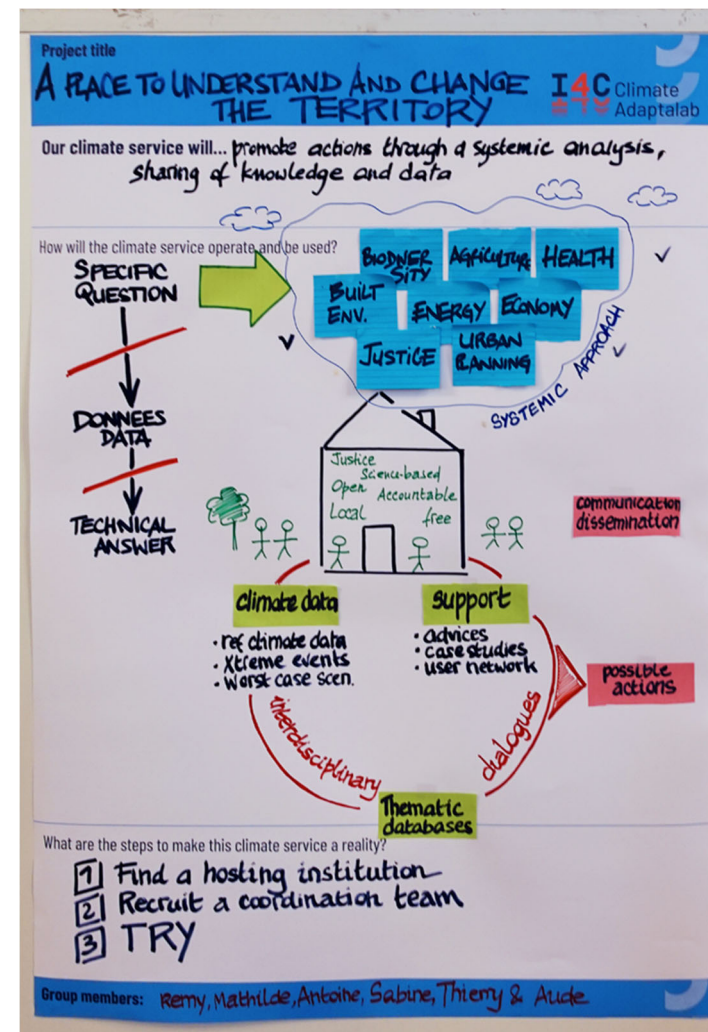 Project title
A PLACE TO UNDERSTAND AND CHANGE
THE TERRITORY
I4C Climate
Adaptalab
Our climate service will... promote actions through a systemic analysis,
sharing of knowledge and data
How will the climate service operate and be used?
SPECIFIC
QUESTION
DONNEES
DATA
TECHNICAL
ANSWER
BIODIVER
SITY
AGRICULTURE
HEALTH
BUILT
ENV.
ENERGY
ECONOMY
JUSTICE
URBAN
PLANNING
SYSTEMIC APPROACH
Justice
Science-based
Open Accountable
Local free
communication
dissemination
climate data
• ref climate data
• Xtreme events
• Worst case scen.
support
• advices
• case studies
• user network
possible
actions
interdisciplinary
dialogues
Thematic
databases
What are the steps to make this climate service a reality?
1 Find a hosting institution
2 Recruit a coordination team
3 TRY
Group members: Remy, Mathilde, Antoine, Sabine, Thierry & Aude